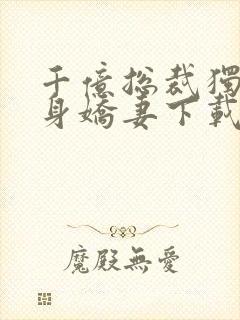 千億総裁獨
身嬌妻下載
魔殿無愛